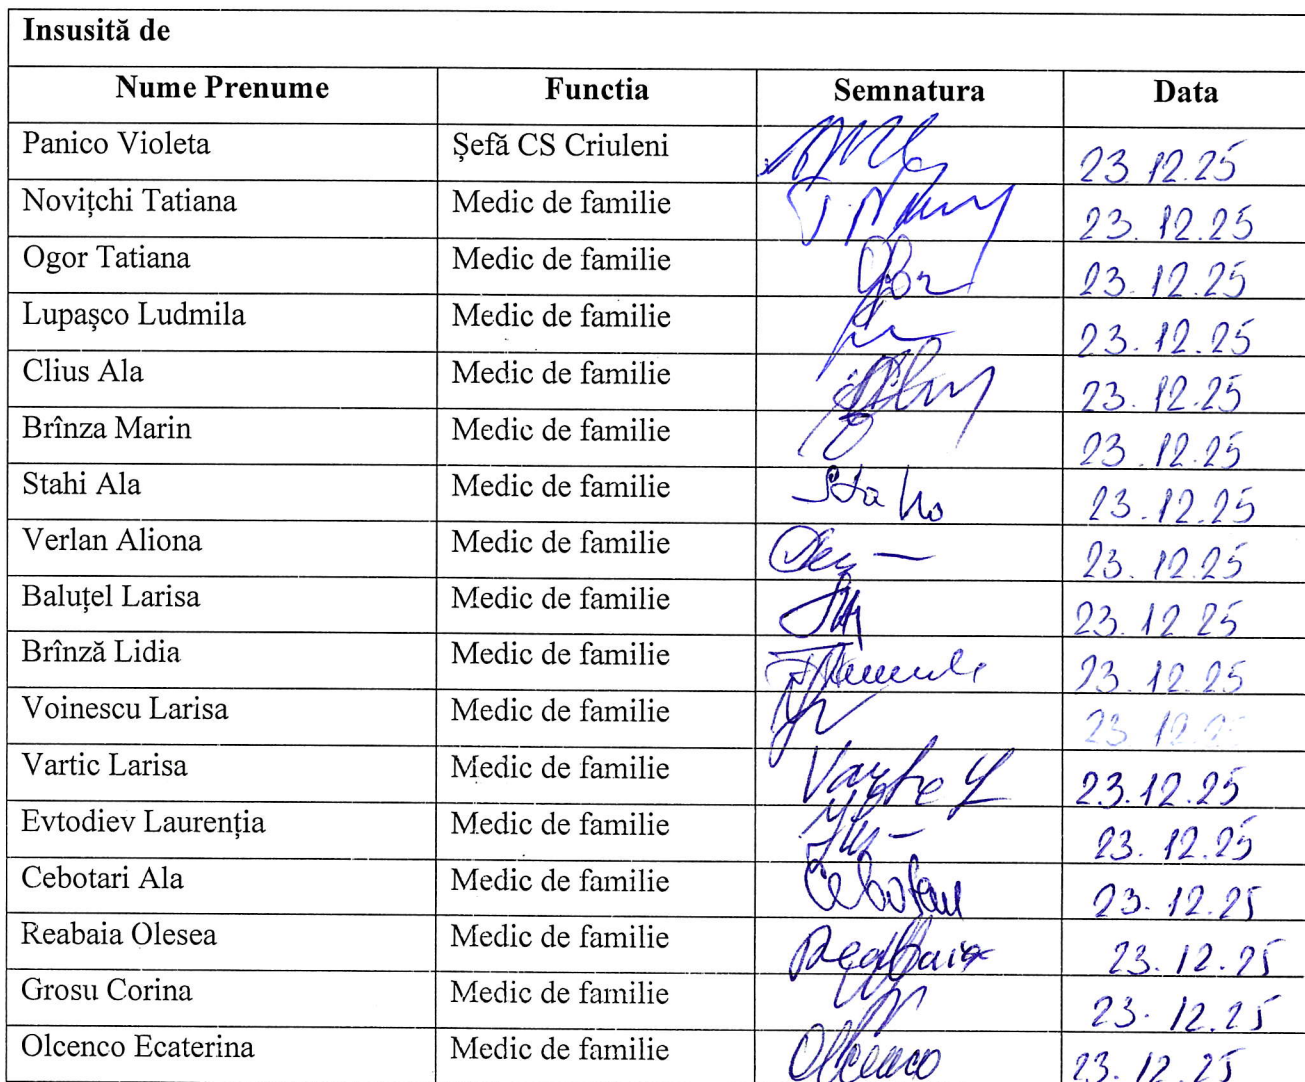 Insusită de
Nume Prenume Functia Semnatura Data
Panico Violeta Șefă CS Criuleni 23.12.25
Novițchi Tatiana Medic de familie 23.12.25
Ogor Tatiana Medic de familie 23.12.25
Lupașco Ludmila Medic de familie 23.12.25
Clius Ala Medic de familie 23.12.25
Brînza Marin Medic de familie 23.12.25
Stahi Ala Medic de familie 23.12.25
Verlan Aliona Medic de familie 23.12.25
Baluțel Larisa Medic de familie 23.12.25
Brînză Lidia Medic de familie 23.12.25
Voinescu Larisa Medic de familie 23.12.25
Vartic Larisa Medic de familie 23.12.25
Evtodiev Laurenția Medic de familie 23.12.25
Cebotari Ala Medic de familie 23.12.25
Reabaia Olesea Medic de familie Reabaia 23.12.25
Grosu Corina Medic de familie 23.12.25
Olcenco Ecaterina Medic de familie Olcenco 23.12.25